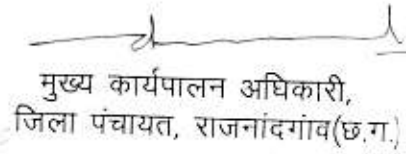 मुख्य कार्यपालन अधिकारी,
जिला पंचायत, राजनांदगांव(छ.ग.)